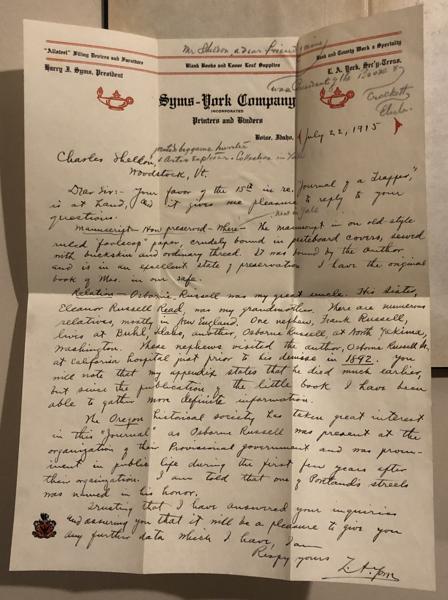 Mr Sheldon a dear friend
"Allsteel" Filing Devices and Furniture
Blank Books and Loose Leaf Supplies
Bank and County Work a Specialty
Harry J. Syms, President
L. A. York, Sec'y-Treas.
was President of the Boone &
Crockett
Club
Syms-York Company
INCORPORATED
Printers and Binders
Boise, Idaho,
July 22, 1915
Charles Sheldon,
noted big game hunter
& Explorer - Collection in Yale
Woodstock, Vt.
Dear Sir:- Your favor of the 15th in re. "Journal of a Trapper,"
is at hand, and it gives me pleasure to reply to your
questions.
now in Yale
Manuscript - How preserved - Where - The manuscript is on old style
ruled foolscap paper, crudely bound in pasteboard covers, sewed
with buckskin and ordinary thread. It was bound by the author
and is in an excellent state of preservation. I have the original
book of Mss. in our safe.
Relation - Osborne Russell was my great uncle. His sister,
Eleanor Russell Read, was my grandmother. There are numerous
relatives mostly in New England. One nephew, Frank Russell,
lives at Buhl, Idaho, another, Osborne Russell, at North Yakima,
Washington. These nephews visited the author, Osborne Russell Sr.
at California hospital just prior to his demise in 1892. You
will note that my appendix states that he died much earlier,
but since the publication of the little book I have been
able to gather more definite information.
The Oregon historical society has taken great interest
in this "Journal" as Osborne Russell was present at the
organization of their Provisional government and was prom-
inent in public life during the first few years after
their organization. I am told that one of Portland's streets
was named in his honor.
Trusting that I have answered your inquiries
and assuring you that it will be a pleasure to give you
any further data which I have, I am
Respy yours
L. A. York